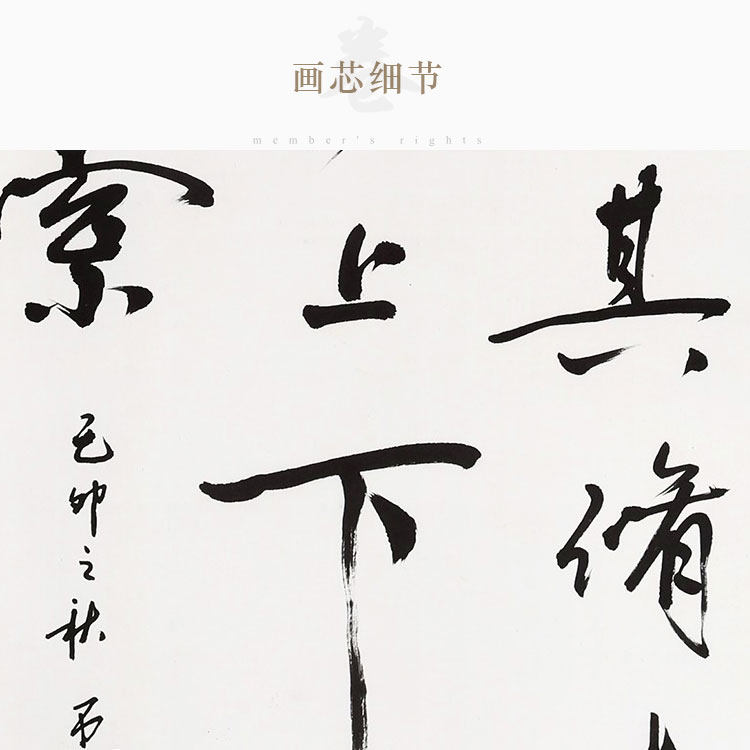 卷
画芯细节
member's rights
其脩
上下
索
己卯之秋